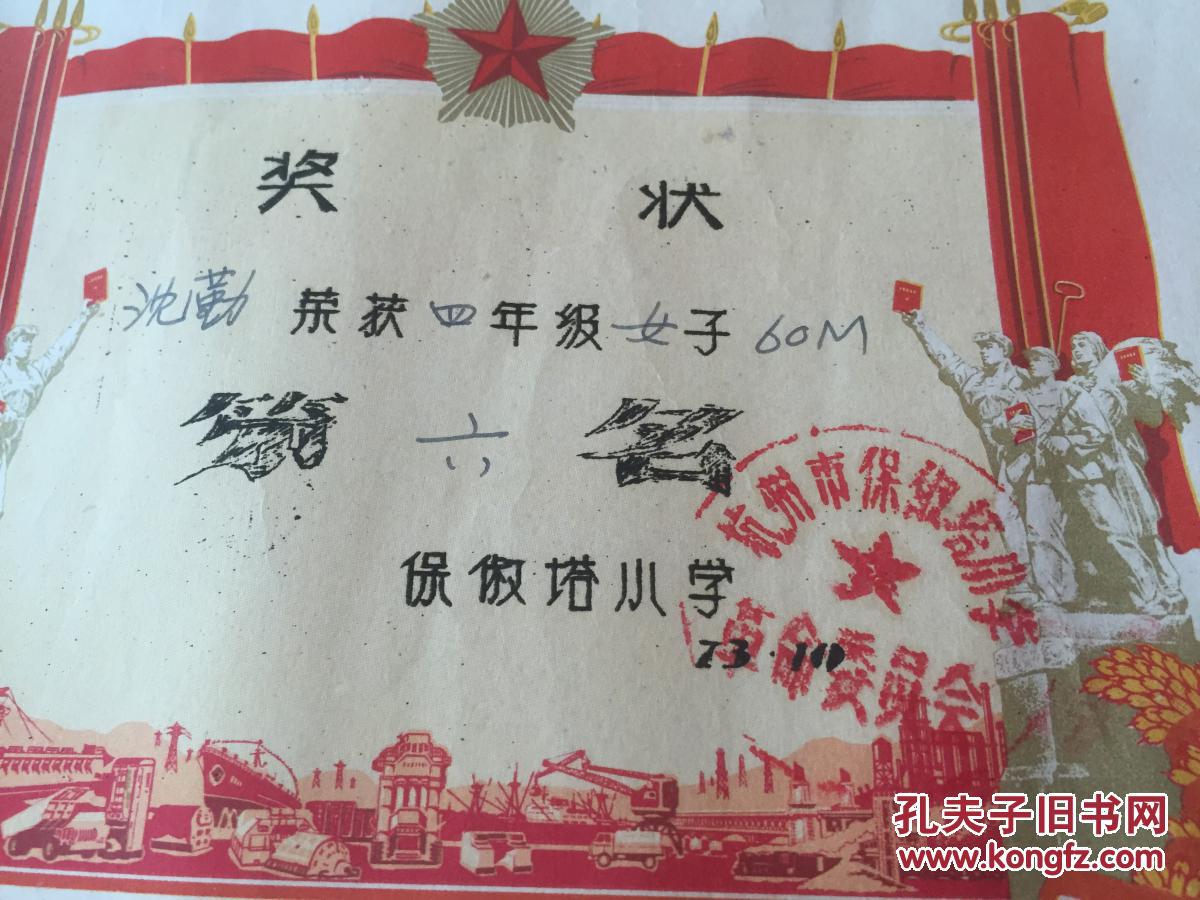 奖 状
沈勤 荣获 四 年级 女子 60M
第 六 名
保俶塔小学
73.10
杭州市保俶塔小学
革命委员会
孔夫子旧书网
www.kongfz.com